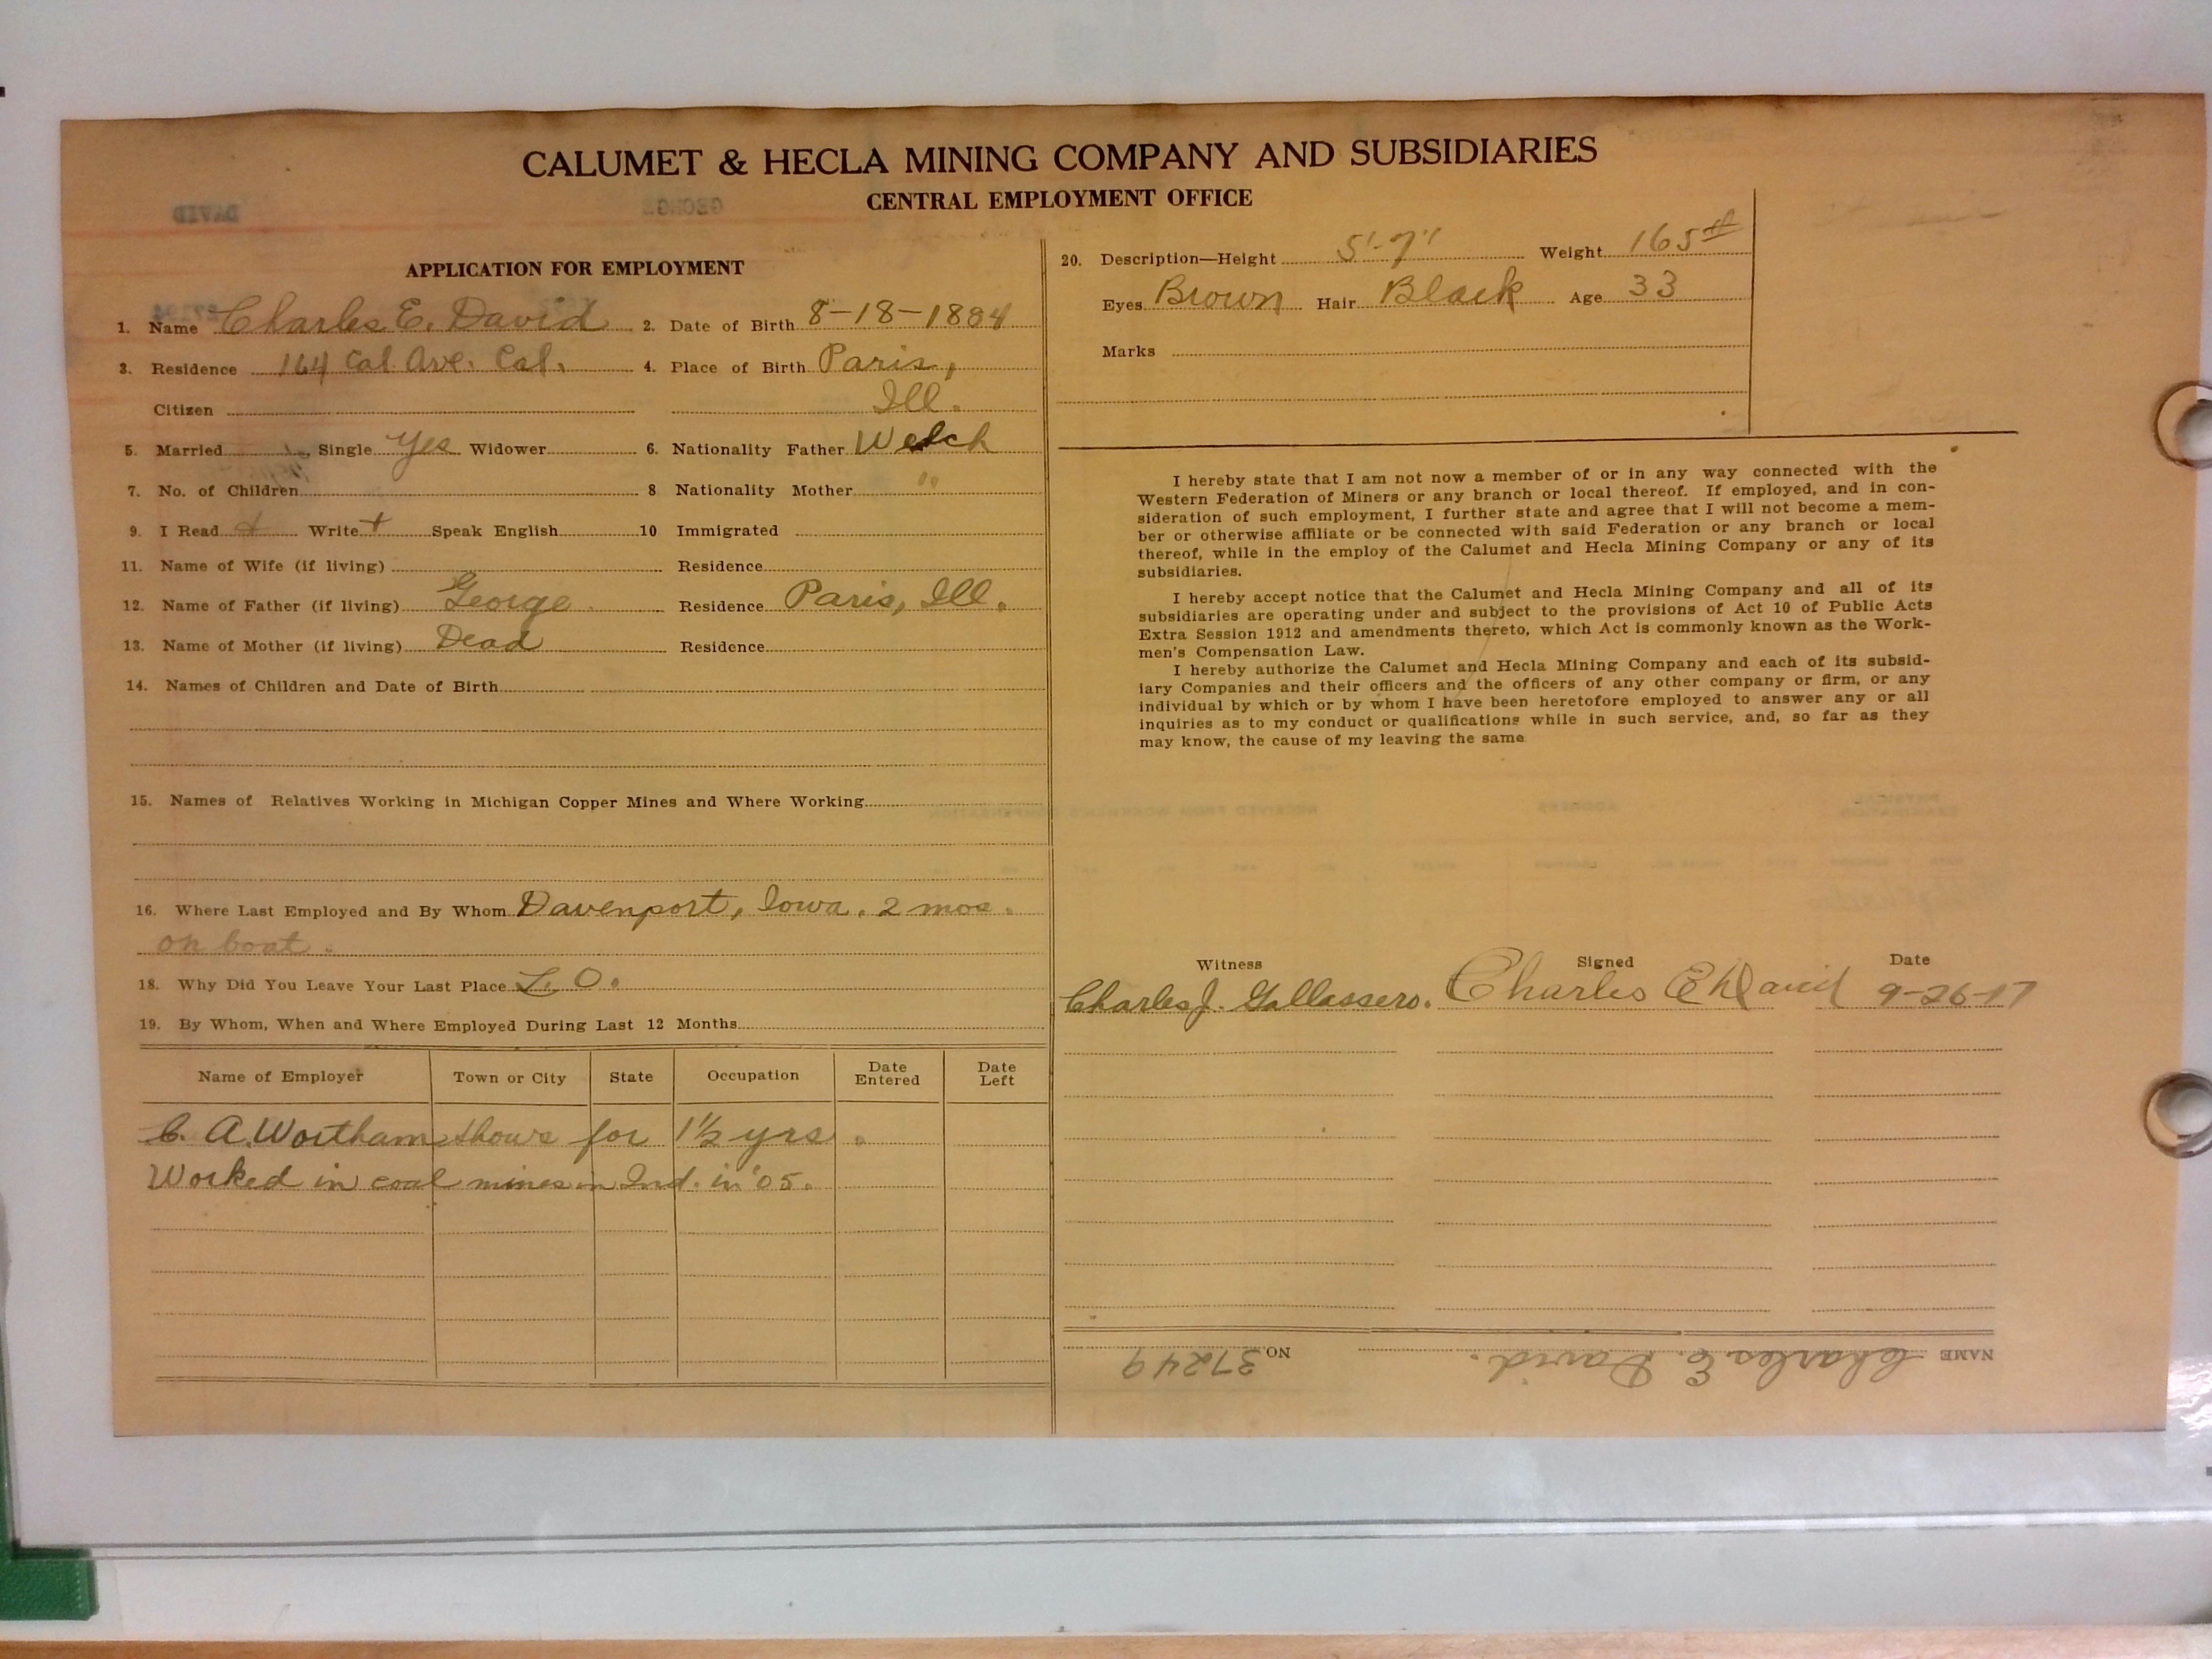 CALUMET & HECLA MINING COMPANY AND SUBSIDIARIES
CENTRAL EMPLOYMENT OFFICE
DAVID
GEORGE
APPLICATION FOR EMPLOYMENT
1. Name Charles E. David 2. Date of Birth 8-18-1884
3. Residence 164 Cal. Ave. Cal. 4. Place of Birth Paris,
Citizen Ill.
5. Married Single Yes Widower 6. Nationality Father Welch
7. No. of Children 8 Nationality Mother "
9. I Read + Write + Speak English 10 Immigrated
11. Name of Wife (if living) Residence
12. Name of Father (if living) George Residence Paris, Ill.
13. Name of Mother (if living) Dead Residence
14. Names of Children and Date of Birth
15. Names of Relatives Working in Michigan Copper Mines and Where Working
16. Where Last Employed and By Whom Davenport, Iowa. 2 mos.
on boat.
18. Why Did You Leave Your Last Place L. O.
19. By Whom, When and Where Employed During Last 12 Months
Name of Employer Town or City State Occupation Date Entered Date Left
C. A. Wortham shows for 1½ yrs.
Worked in coal mines in Ind. in '05.
20. Description—Height 5'-7" Weight 165#
Eyes Brown Hair Black Age 33
Marks
I hereby state that I am not now a member of or in any way connected with the
Western Federation of Miners or any branch or local thereof. If employed, and in con-
sideration of such employment, I further state and agree that I will not become a mem-
ber or otherwise affiliate or be connected with said Federation or any branch or local
thereof, while in the employ of the Calumet and Hecla Mining Company or any of its
subsidiaries.
I hereby accept notice that the Calumet and Hecla Mining Company and all of its
subsidiaries are operating under and subject to the provisions of Act 10 of Public Acts
Extra Session 1912 and amendments thereto, which Act is commonly known as the Work-
men's Compensation Law.
I hereby authorize the Calumet and Hecla Mining Company and each of its subsid-
iary Companies and their officers and the officers of any other company or firm, or any
individual by which or by whom I have been heretofore employed to answer any or all
inquiries as to my conduct or qualifications while in such service, and, so far as they
may know, the cause of my leaving the same
Witness Signed Date
Charles J. Charles E David 9-26-17
NAME Charles E. David. NO. 37249